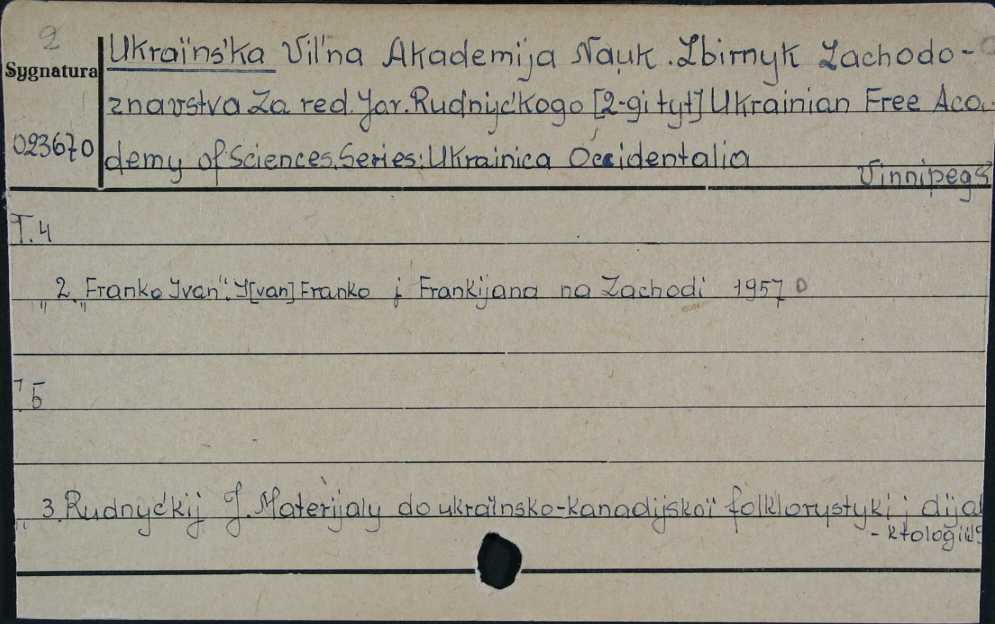 2
Ukraïnśka Vil'na Akademija Nauk. Zbirnyk Zachodo-
Sygnatura
znavstva Za red. Jar. Rudnyćkogo [2-gi tyt] Ukrainian Free Aca-
023670
demy of Sciences, Series: Ukrainica Occidentalia
Vinnipeg
T. 4
" 2. "Franko Ivan": I[van] Franko i Frankijana na Zachodi 1957
T. 5
" 3. Rudnyćkij J. Materijaly do ukraïnsko-kanadijskoï folklorystyki i dijal
-ktologii